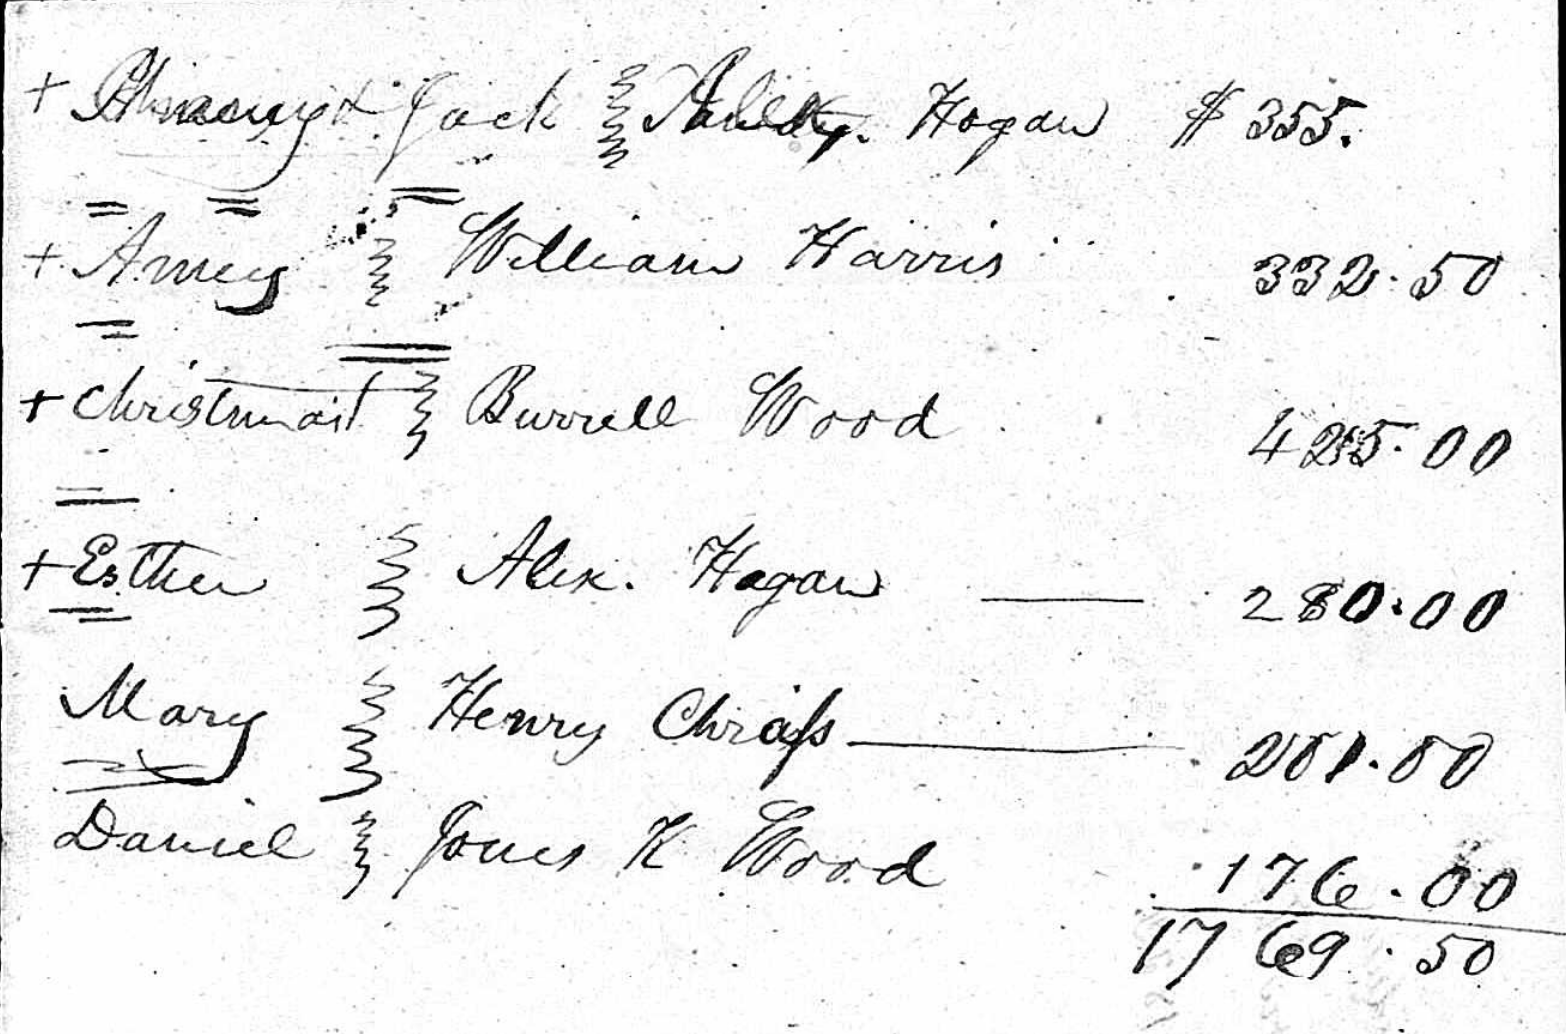 + & Jack } Hogan $ 355.
+ Amey } William Harris 332.50
+ Christmas } Burrell Wood 425.00
+ Esther } Alex. Hogan — 280.00
Mary } Henry — 201.00
Daniel } Jones K Wood 176.00
1769.50